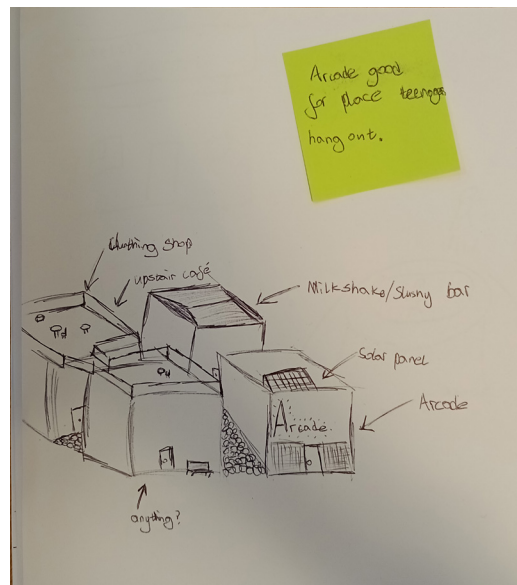 Arcade good
for place teenages
hang out.
Clunthing shop
upstair café
Milkshake/Slushy bar
Solar panel
Arcade
Arcade
anything?